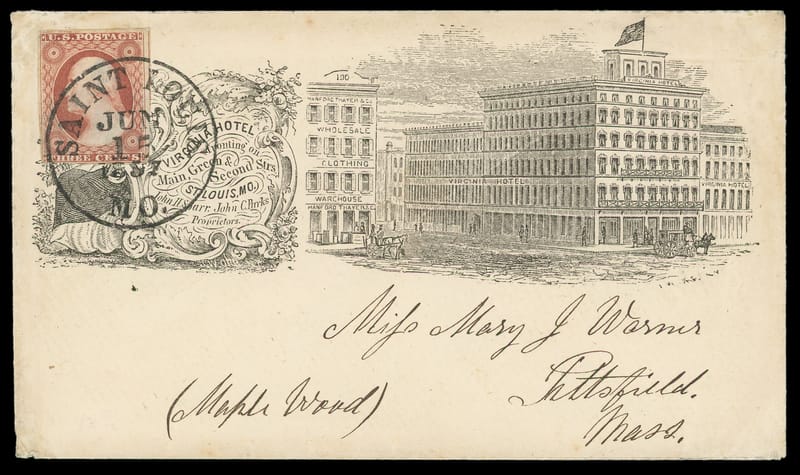 U.S. POSTAGE
THREE CENTS
SAINT LOUIS
JUN
1857
MO.
VIRGINIA HOTEL
Fronting on
Main Green &
Second Strs.
ST LOUIS, MO.
John H. Sparr. John C. Parks
Proprietors.
190
HANFORD THAYER & CO.
WHOLESALE
CLOTHING
WARCHOUSE
HANFORD THAYER & CO.
VIRGINIA HOTEL
VIRGINIA HOTEL
VIRGINIA HOTEL
Miss Mary J Warner
Pittsfield.
Mass.
(Maple Wood)